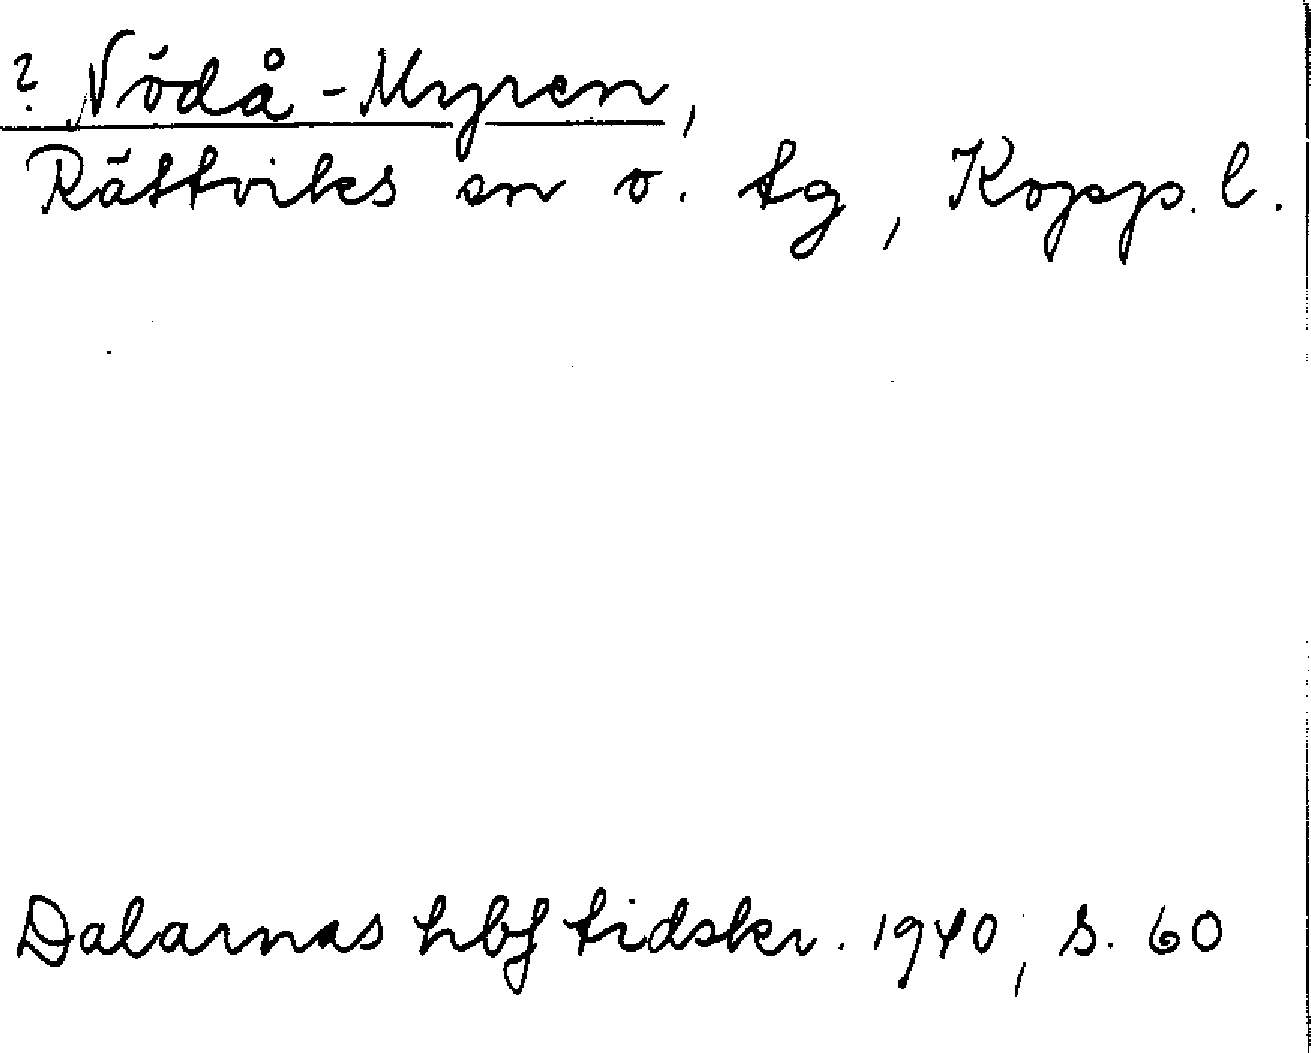 ? Nödå-Myren,
Rättviks sn o. tg, Kopp. l.
Dalarnas hbf tidskr. 1940, s. 60